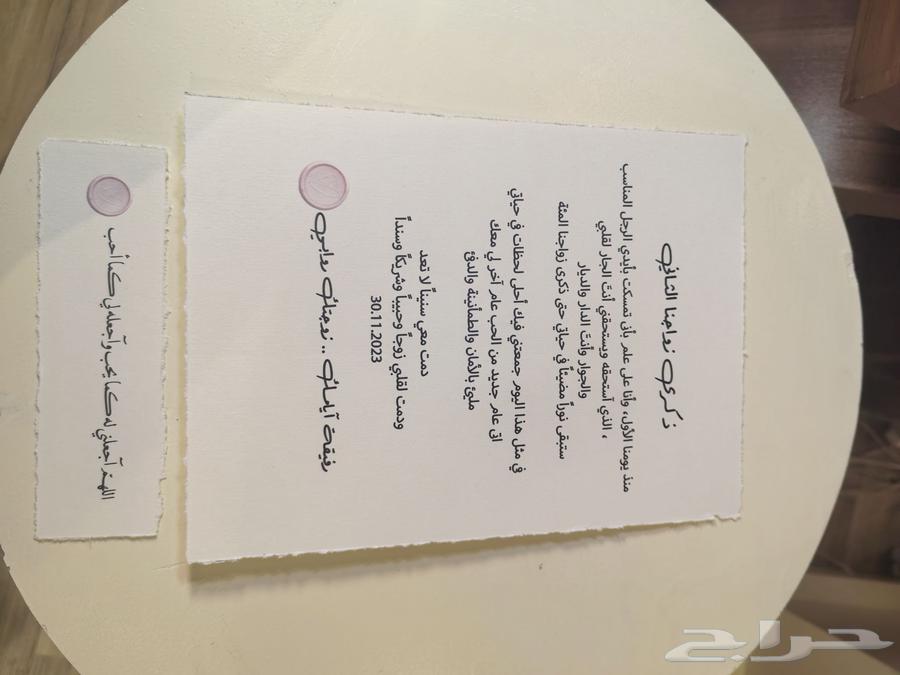 ذكرى زواجنا الثاني
منذ يومنا الأول، وأنا على علم بأني تمسكت بأيدي الرجل المناسب
، الذي أستحقه ويستحقني أنتَ الجار لقلبي
والجوار وأنتَ الدار والديار
ستبقى نوراً مضيئاً في حياتي حتى ذكرى زواجنا المئة
في مثل هذا اليوم جمعتني فيك أحلى لحظات في حياتي
اتى عام جديد من الحب عام آخر لي معك
مليئ بالأمان والطمأنينة والدفئ
دمت معي سنيناً لا تعد
ودمت لقلبي زوجاً وحبيباً وشريكاً وسنداً
30.11.2023
رفيقة أيامك .. زوجتك روابي
اللهم أجعلني له كما يحب وأجعله لي كما أحب
حراج